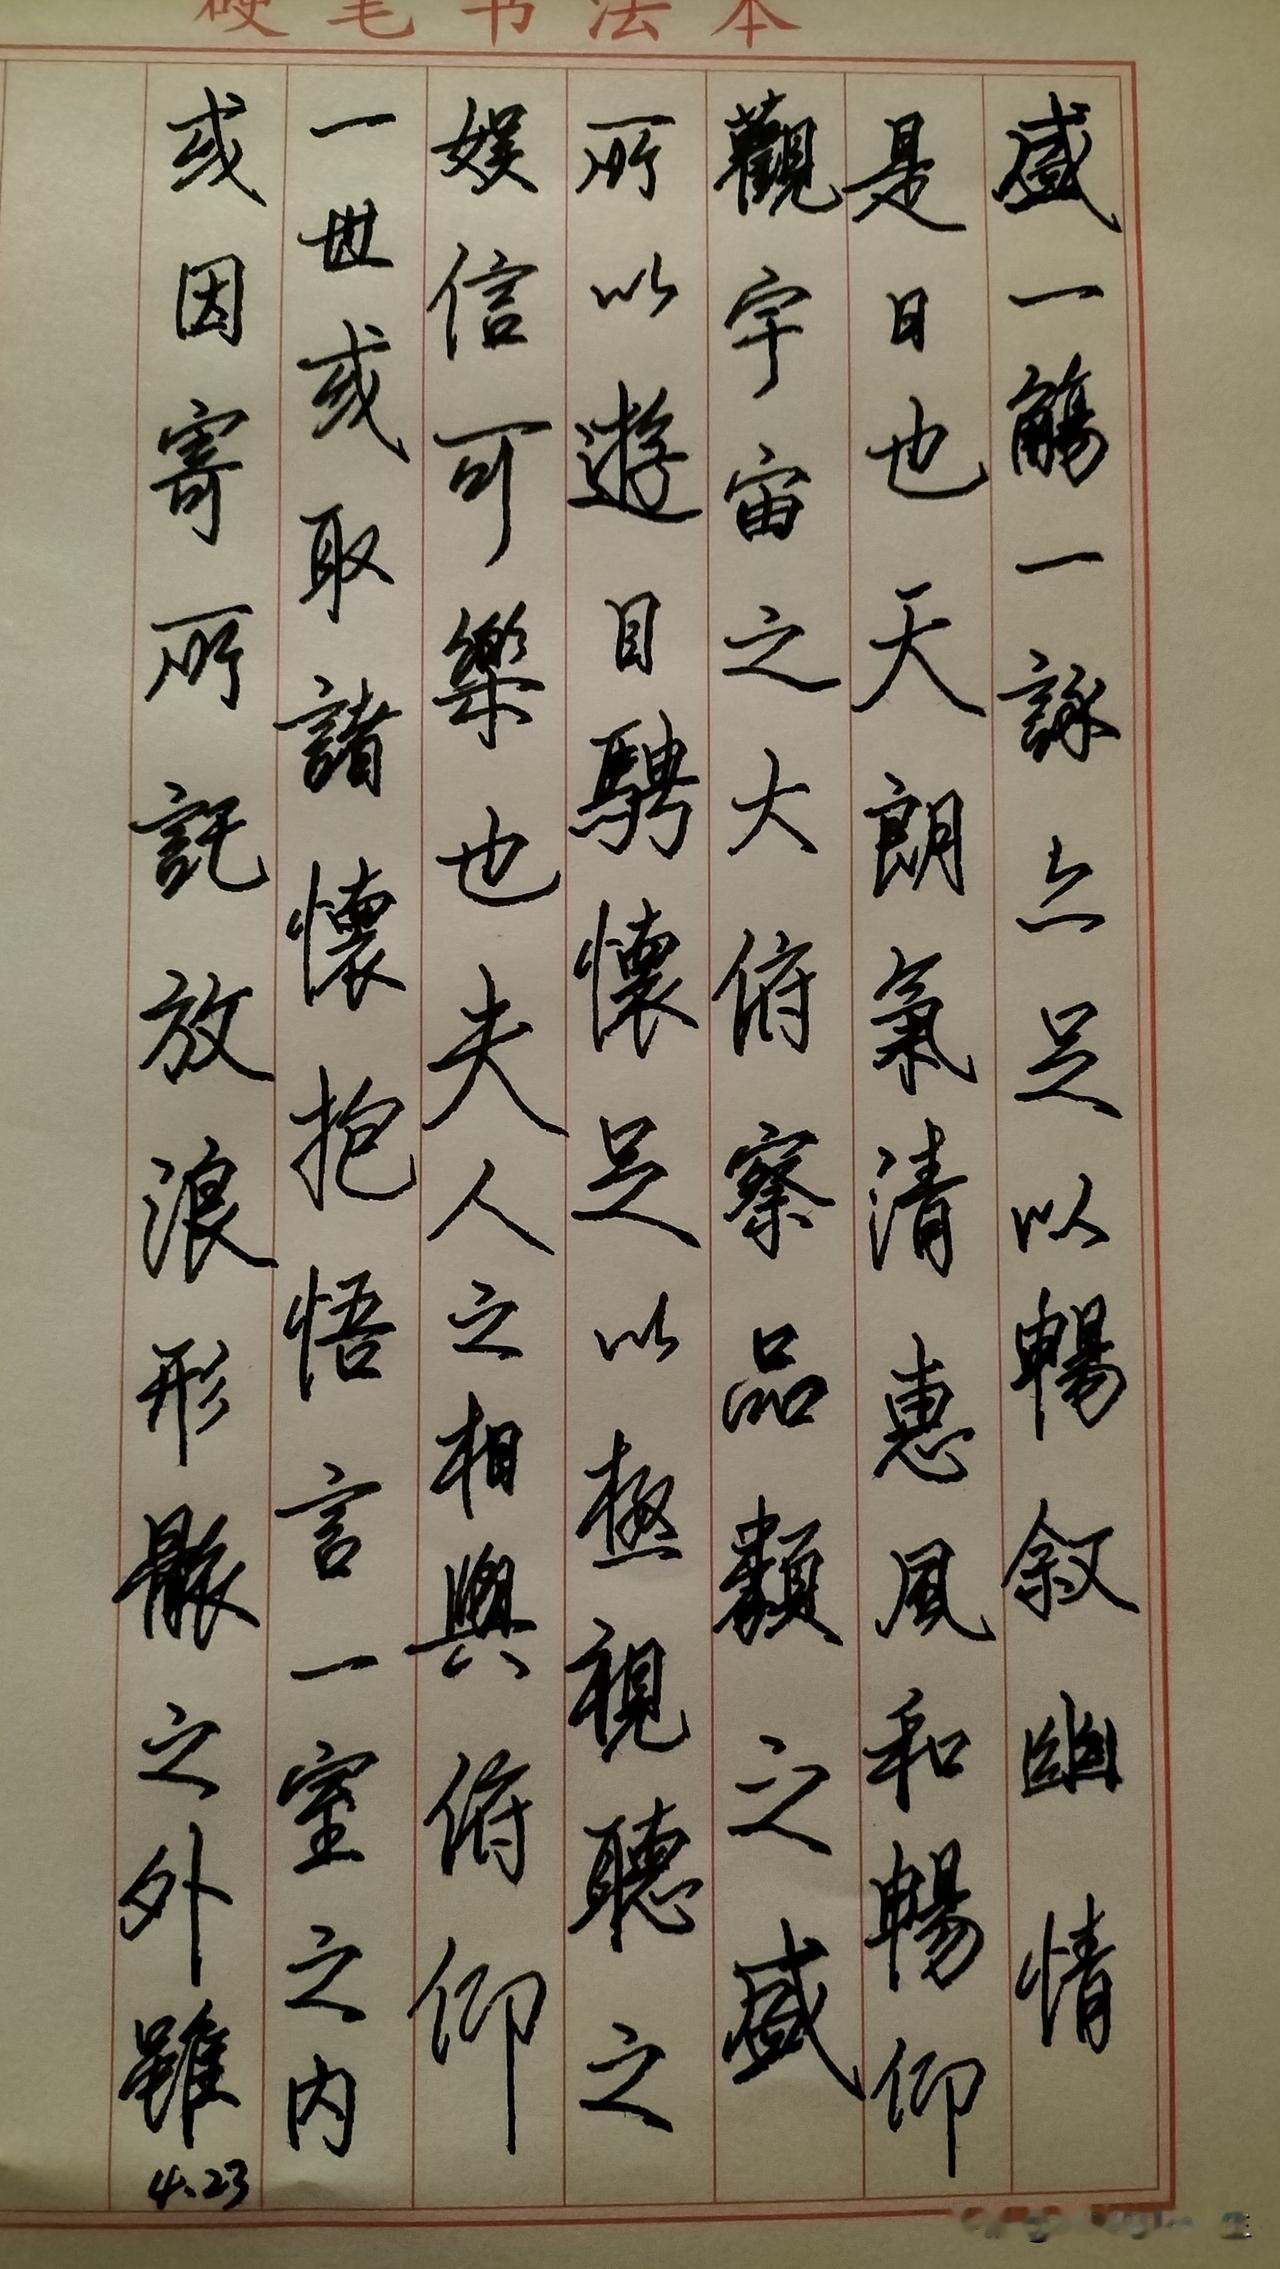 硬笔书法本
盛一觞一詠亦足以暢叙幽情
是日也天朗氣清惠風和暢仰
觀宇宙之大俯察品類之盛
所以遊目騁懷足以極視聽之
娱信可樂也夫人之相與俯仰
一世或取諸懷抱悟言一室之内
或因寄所託放浪形骸之外雖
4.23